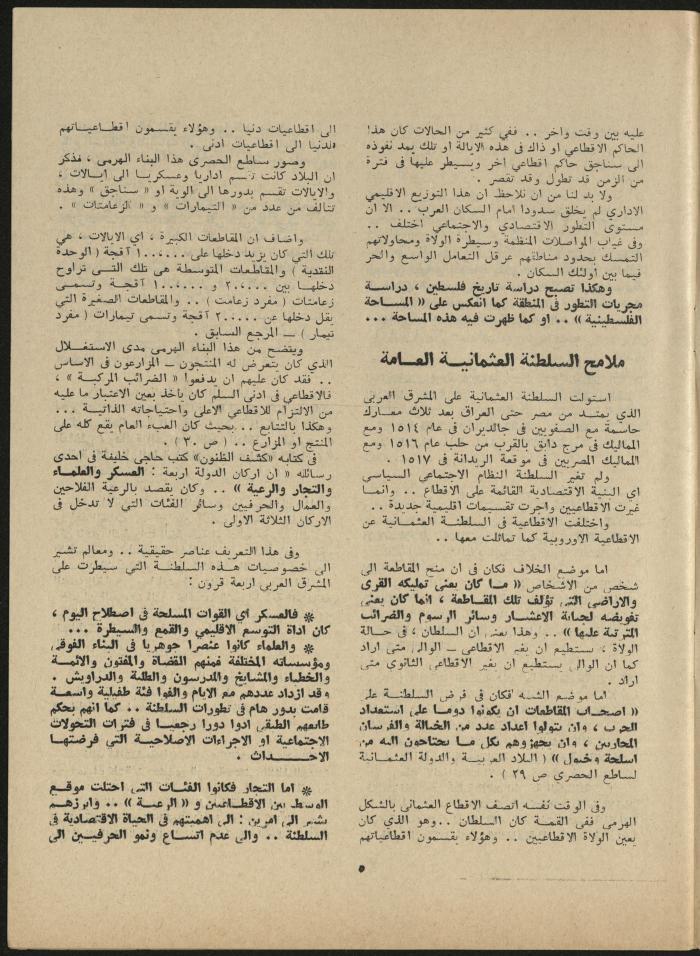 عليه بين وقت واخر .. ففي كثير من الحالات كان هذا
الحاكم الاقطاعي او ذاك في هذه الايالة او تلك يمد نفوذه
الى سناجق حاكم اقطاعي اخر ويسيطر عليها في فترة
من الزمن قد تطول وقد تقصر .
ولا بد لنا من ان نلاحظ ان هذا التوزيع الاقليمي
الاداري لم يخلق سدودا امام السكان العرب .. الا ان
مستوى التطور الاقتصادي والاجتماعي اختلف ..
وفي غياب المواصلات المنظمة وسيطرة الولاة ومحاولاتهم
التمسك بحدود مناطقهم عرقل التعامل الواسع والحر
فيما بين أولئك السكان .
وهكذا تصبح دراسة تاريخ فلسطين ، دراسة
مجريات التطور في المنطقة كما انعكس على « المساحة
الفلسطينية » .. او كما ظهرت فيه هذه المساحة ...
ملامح السلطنة العثمانية العامة
استولت السلطنة العثمانية على المشرق العربي
الذي يمتد من مصر حتى العراق بعد ثلاث معارك
حاسمة مع الصفويين في جالديران في عام ١٥١٤ ومع
المماليك في مرج دابق بالقرب من حلب عام ١٥١٦ ومع
المماليك المصريين في موقعة الريدانة في ١٥١٧ .
ولم تغير السلطنة النظام الاجتماعي السياسي
اي البنية الاقتصادية القائمة على الاقطاع .. وانما
غيرت الاقطاعيين واجرت تقسيمات اقليمية جديدة ..
واختلفت الاقطاعية في السلطنة العثمانية عن
الاقطاعية الاوروبية كما تماثلت معها ..
اما موضع الخلاف فكان في ان منح المقاطعة الى
شخص من الاشخاص « ما كان يعني تمليكه القرى
والاراضي التي تؤلف تلك المقاطعة ، انما كان يعني
تفويضه لجباية الاعشار وسائر الرسوم والضرائب
المترتبة عليها » .. وهذا يعني ان السلطان ، في حالة
الولاة ، يستطيع ان يغير الاقطاعي – الوالي متى اراد
كما ان الوالي يستطيع ان يغير الاقطاعي الثانوي متى
اراد .
اما موضع الشبه فكان في فرض السلطنة على
« اصحاب المقاطعات ان يكونوا دوما على استعداد
للحرب ، وان يتولوا اعداد عدد من الخيالة والفرسان
المحاربين ، وان يجهزوهم بكل ما يحتاجون اليه من
اسلحة وخيول » ( البلاد العربية والدولة العثمانية
لساطع الحصري ص ٢٩ ) .
وفي الوقت نفسه اتصف الاقطاع العثماني بالشكل
الهرمي ففي القمة كان السلطان .. وهو الذي كان
يعين الولاة الاقطاعيين .. وهؤلاء يقسمون اقطاعياتهم
الى اقطاعيات دنيا .. وهؤلاء يقسمون اقطاعياتهم
الدنيا الى اقطاعيات ادنى .
وصور ساطع الحصرى هذا البناء الهرمي ، فذكر
ان البلاد كانت تقسم اداريا وعسكريا الى ايالات ،
والايالات تقسم بدورها الى الوية او « سناجق » وهذه
تتألف من عدد من « التيمارات » و « الزعامتات » .
واضاف ان المقاطعات الكبيرة ، اي الايالات ، هي
تلك التي كان يزيد دخلها على ١٠٠،٠٠٠ آقجة ( الوحدة
النقدية ) والمقاطعات المتوسطة هي تلك التي تراوح
دخلها بين ٢٠،٠٠٠ و ١٠٠،٠٠٠ آقجة وتسمى
زعامتات ( مفرد زعامت ) .. والمقاطعات الصغيرة التي
يقل دخلها عن ٢٠،٠٠٠ آقجة وتسمى تيمارات ( مفرد
تيمار ) – المرجع السابق .
ويتضح من هذا البناء الهرمي مدى الاستغلال
الذي كان يتعرض له المنتجون – المزارعون في الاساس
.. فقد كان عليهم ان يدفعوا « الضرائب المركبة » ،
فالاقطاعي في ادنى السلم كان يأخذ بعين الاعتبار ما عليه
من الالتزام للاقطاعي الاعلى واحتياجاته الذاتية ...
وهكذا بالتتابع .. بحيث كان العبء العام يقع كله على
المنتج او المزارع .. ( ص ٣٠ ) .
في كتابه «كشف الظنون» كتب حاجي خليفة في احدى
رسائله « ان اركان الدولة اربعة : العسكر والعلماء
والتجار والرعية » .. وكان يقصد بالرعية الفلاحين
والعمال والحرفيين وسائر الفئات التي لا تدخل في
الاركان الثلاثة الاولى .
وفي هذا التعريف عناصر حقيقية .. ومعالم تشير
الى خصوصيات هذه السلطنة التي سيطرت على
المشرق العربي اربعة قرون :
* فالعسكر اي القوات المسلحة في اصطلاح اليوم ،
كان اداة التوسع الاقليمي والقمع والسيطرة ...
* والعلماء كانوا عنصرا جوهريا في البناء الفوقي
ومؤسساته المختلفة فمنهم القضاة والمفتون والائمة
والخطباء والمشايخ والمدرسون والطلبة والدراويش .
وقد ازداد عددهم مع الايام والفوا فئة طفيلية واسعة
قامت بدور هام في تطورات السلطنة .. كما انهم بحكم
طابعهم الطبقي ادوا دورا رجعيا في فترات التحولات
الاجتماعية او الاجراءات الاصلاحية التي فرضتها
الاحداث .
* اما التجار فكانوا الفئات التي احتلت موقع
الوسط بين الاقطاعيين و « الرعية » .. وابرزهم
يشير الى امرين : الى اهميتهم في الحياة الاقتصادية في
السلطنة .. والى عدم اتساع ونمو الحرفيين الى
٥